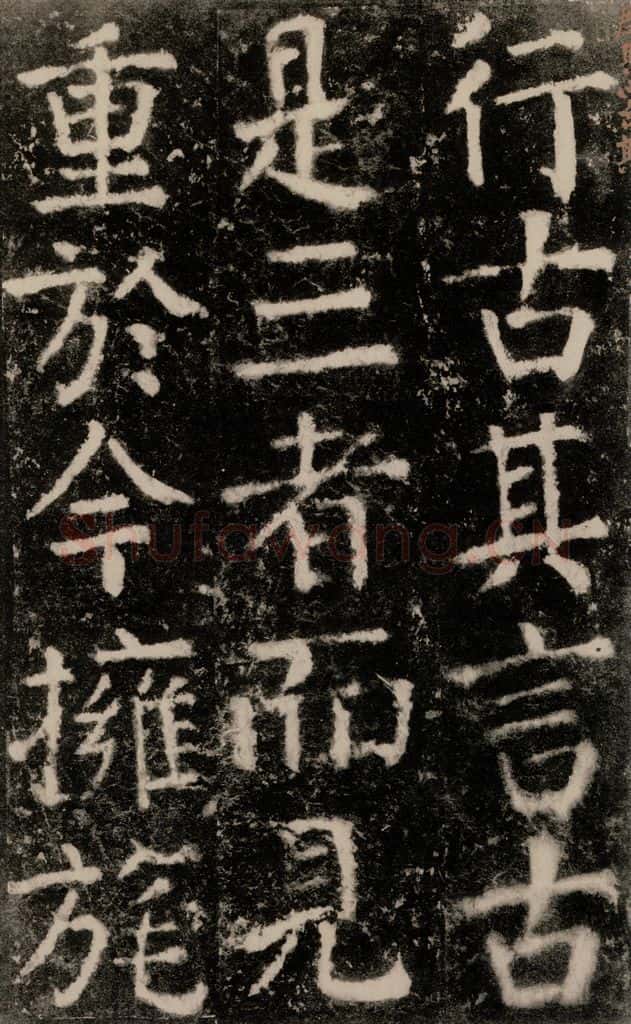 行古其言古
是三者而見
重於今擁旄
Shufawang.CN